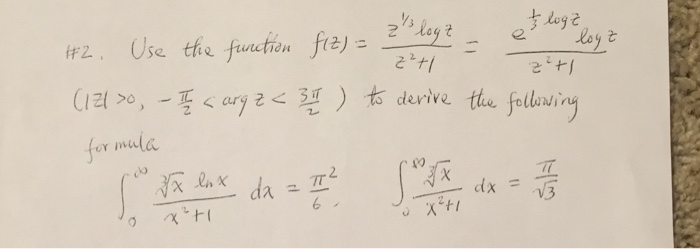 #2. Use the function f(z) = z^{1/3} log z / (z²+1) = e^{1/3 log z} log z / (z²+1)
(|z| >0, -π/2 < arg z < 3π/2) to derive the following
formula
∫₀^∞ ∛x ln x / (x²+1) dx = π²/6, ∫₀^∞ ∛x / (x²+1) dx = π/√3